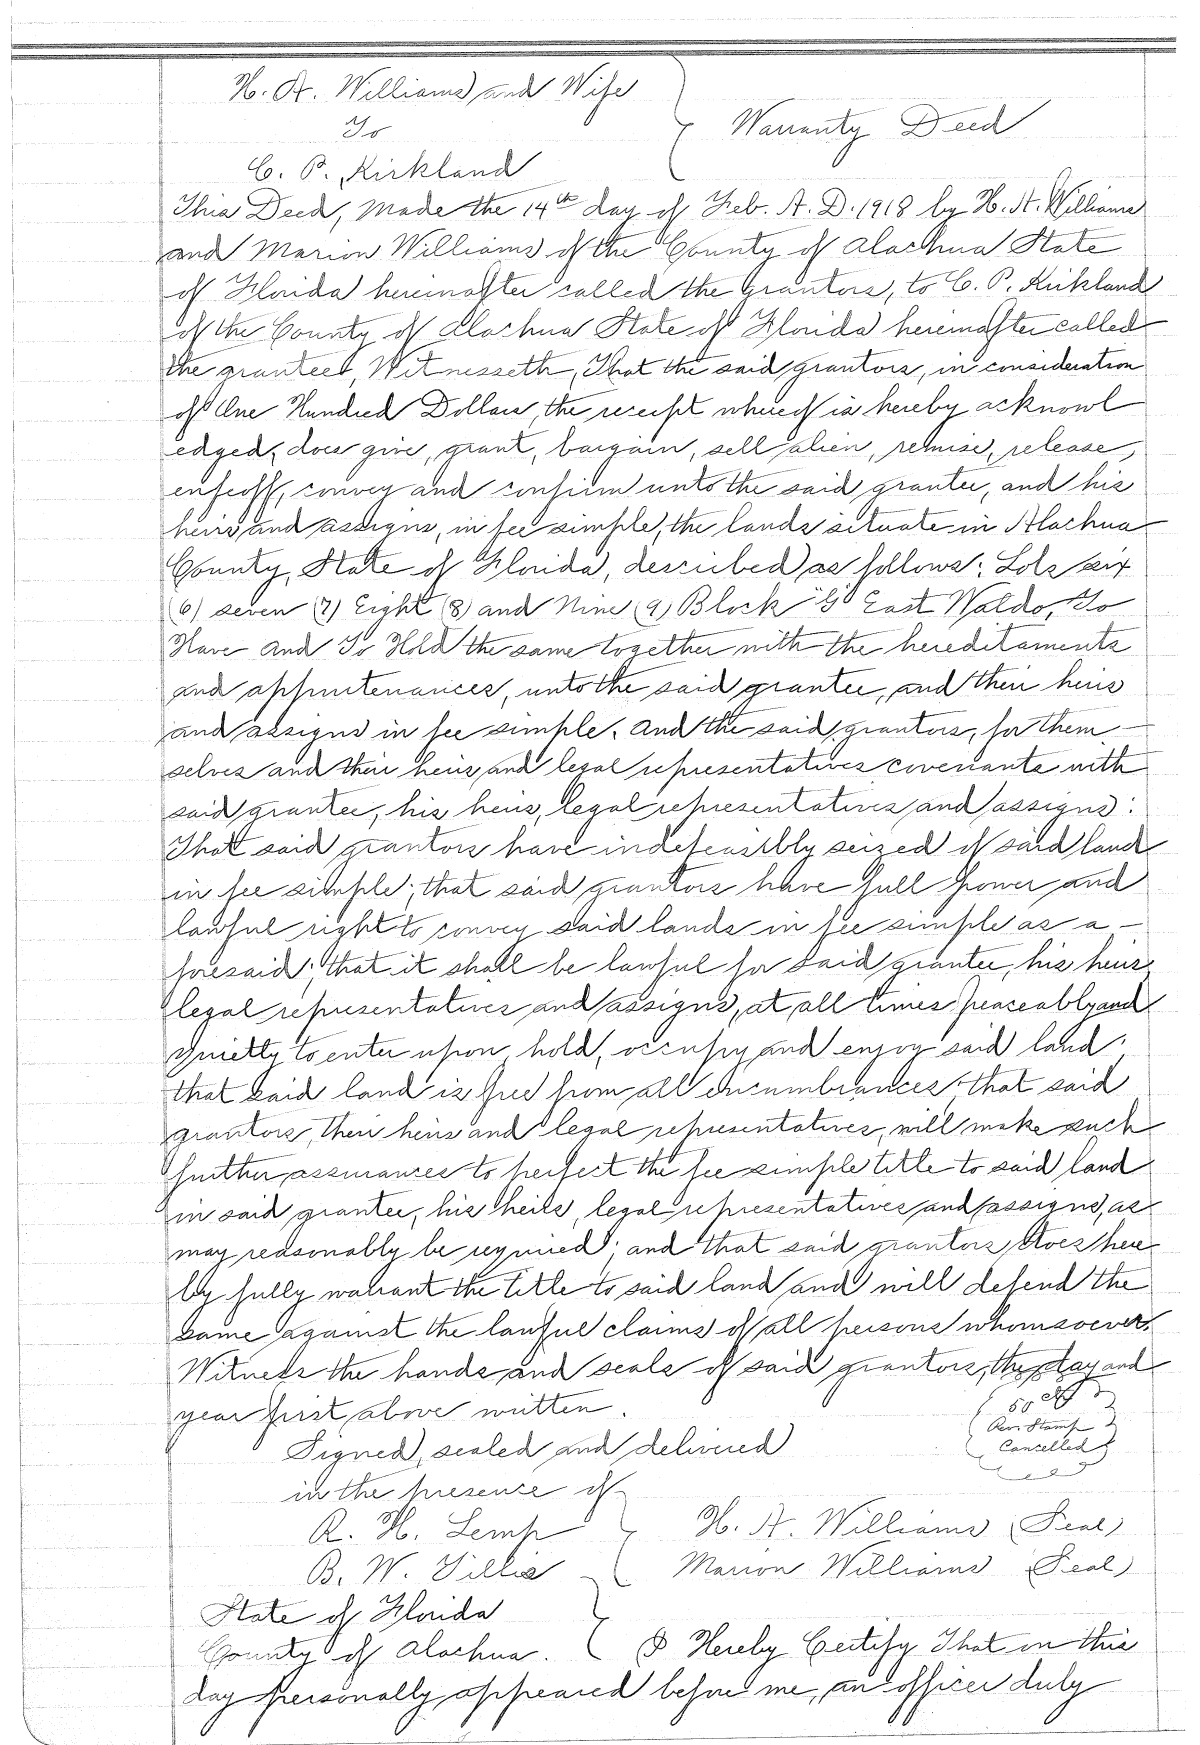 H. A. Williams and Wife
To
Warranty Deed
C. P. Kirkland
This Deed, Made the 14th day of Feb. A. D. 1918 by H. A. Williams
and Marion Williams of the County of Alachua State
of Florida hereinafter called the grantors, to C. P. Kirkland
of the County of Alachua State of Florida hereinafter called
the grantees, Witnesseth, That the said grantors, in consideration
of One Hundred Dollars, the receipt whereof is hereby acknowl
edged, does give, grant, bargain, sell alien, remise, release,
enfeoff, convey and confirm unto the said grantee, and his
heirs and assigns, in fee simple, the lands situate in Alachua
County, State of Florida, described as follows: Lots six
(6) seven (7) Eight (8) and Nine (9) Block "G" East Waldo, To
Have and To Hold the same together with the hereditaments
and appurtenances, unto the said grantee, and their heirs
and assigns in fee simple. And the said grantors, for them-
selves and their heirs and legal representatives covenants with
said grantee, his heirs, legal representatives and assigns:
That said grantors have indefeasibly seized of said land
in fee simple; that said grantors have full power and
lawful right to convey said lands in fee simple as a-
foresaid; that it shall be lawful for said grantee, his heirs
legal representatives and assigns, at all times peaceably and
quietly to enter upon, hold, occupy and enjoy said land;
that said land is free from all encumbrances; that said
grantors, their heirs and legal representatives, will make such
further assurances to perfect the fee simple title to said land
in said grantee, his heirs, legal representatives and assigns, as
may reasonably be required; and that said grantors, does here
by fully warrant the title to said land and will defend the
same against the lawful claims of all persons whomsoever.
Witness the hands and seals of said grantors, the day and
year first above written.
50 cts
Rev. Stamp
Cancelled
Signed, sealed and delivered
in the presence of
R. H. Lemp H. A. Williams (Seal)
B. W. Tillis Marion Williams (Seal)
State of Florida
County of Alachua. I Hereby Certify That on this
day personally appeared before me, an officer duly